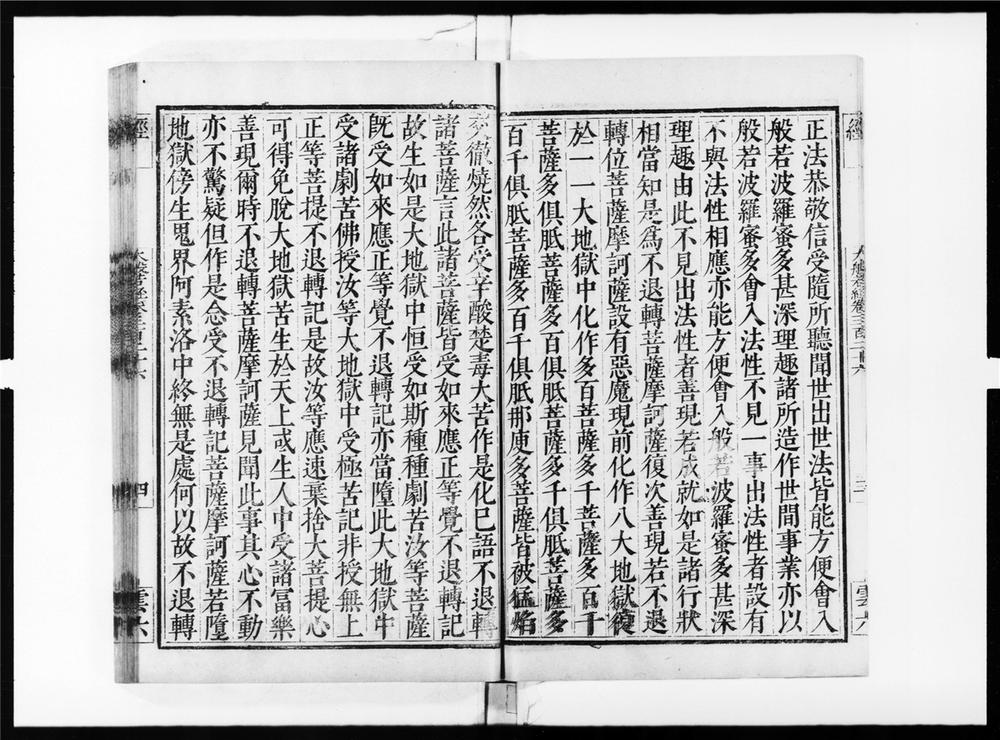 正法恭敬信受隨所聽聞世出世法皆能方便會入
般若波羅蜜多甚深理趣諸所造作世間事業亦以
般若波羅蜜多會入法性不見一事出法性者設有
不與法性相應亦能方便會入般若波羅蜜多甚深
理趣由此不見出法性者善現若成就如是諸行狀
相當知是爲不退轉菩薩摩訶薩復次善現若不退
轉位菩薩摩訶薩設有惡魔現前化作八大地獄復
於一一大地獄中化作多百菩薩多千菩薩多百千
菩薩多俱胝菩薩多百俱胝菩薩多千俱胝菩薩多
百千俱胝菩薩多百千俱胝那庾多菩薩皆被猛焰
交徹燒然各受辛酸楚毒大苦作是化已語不退轉
諸菩薩言此諸菩薩皆受如來應正等覺不退轉記
故生如是大地獄中恒受如斯種種劇苦汝等菩薩
既受如來應正等覺不退轉記亦當墮此大地獄中
受諸劇苦佛授汝等大地獄中受極苦記非授無上
正等菩提不退轉記是故汝等應速棄捨大菩提心
可得免脫大地獄苦生於天上或生人中受諸富樂
善現爾時不退轉菩薩摩訶薩見聞此事其心不動
亦不驚疑但作是念受不退轉記菩薩摩訶薩若墮
地獄傍生鬼界阿素洛中終無是處何以故不退轉
經
大般若經卷三百二十六
三
雲六
經
大般若經卷三百二十六
四
雲六